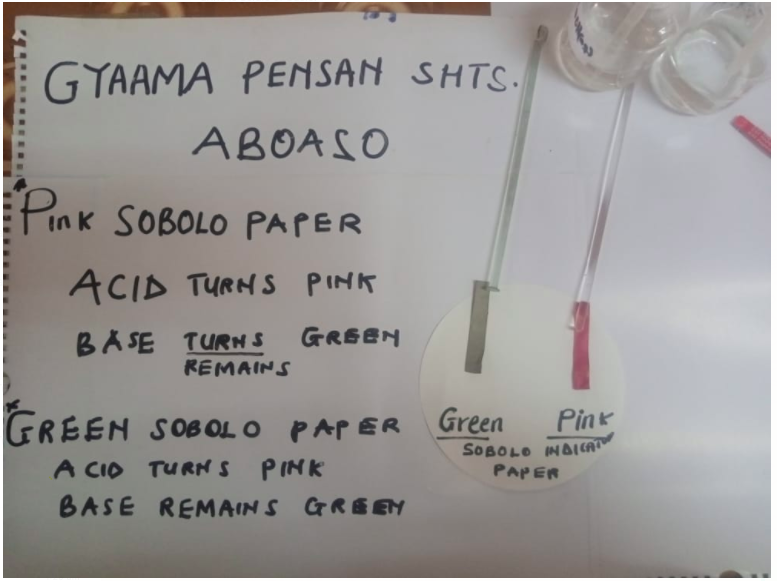 GYAAMA PENSAN SHTS.
ABOASO
* Pink SOBOLO PAPER
ACID TURNS PINK
BASE TURNS GREEN
REMAINS
* GREEN SOBOLO PAPER
ACID TURNS PINK
BASE REMAINS GREEN
Green Pink
SOBOLO INDICATOR
PAPER